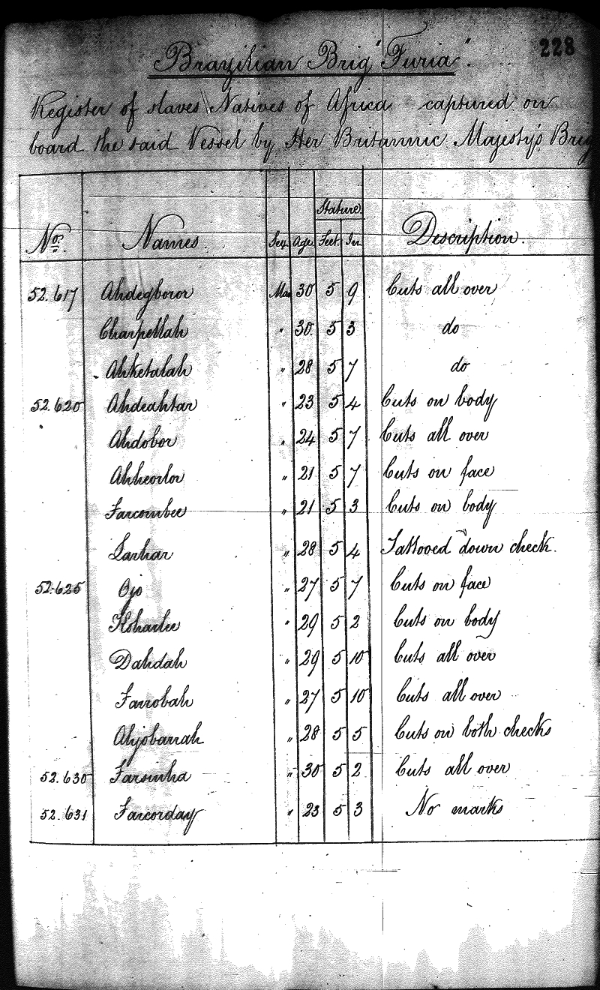 228
Brazilian Brig "Furia".
Register of slaves Natives of Africa captured on
board the said Vessel by Her Britannic Majesty's Brig
Stature
No. Names. Sex Age Feet In Description.
52.617 Ahdegboror Man 30 5 9 Cuts all over
Charpellah " 30 5 3 do
Ahketalah " 28 5 7 do
52.620 Ahdeahtar " 23 5 4 Cuts on body
Ahdobor " 24 5 7 Cuts all over
" 21 5 7 Cuts on face
Farcombee " 21 5 3 Cuts on body
Larhar " 28 5 4 Tattooed down cheek.
52.625 Ojo " 27 5 7 Cuts on face
" 29 5 2 Cuts on body
Dahdah " 29 5 10 Cuts all over
Farrobah " 27 5 10 Cuts all over
Ahjobarrah " 28 5 5 Cuts on both cheeks
52.630 Farsinha " 30 5 2 Cuts all over
52.631 Farcorday " 23 5 3 No marks